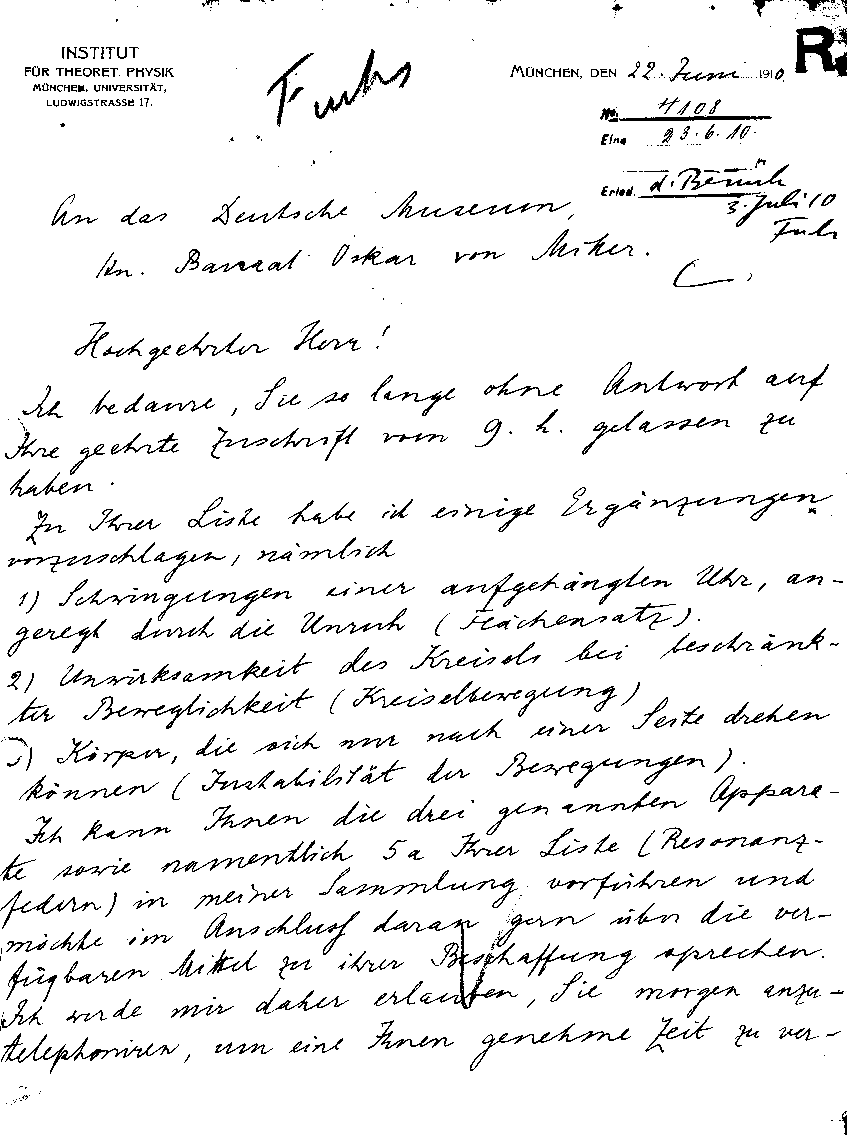 INSTITUT
FÜR THEORET. PHYSIK
MÜNCHEN, UNIVERSITÄT,
LUDWIGSTRASSE 17.
Fuchs
MÜNCHEN, DEN 22. Juni 1910
R.
No. 4108
Eing. 23.6.10.
Erled. d.
3. Juli 10
An das Deutsche Museum,
Hn. Baurat Oskar von Miller.
Hochgeehrter Herr!
Ich bedaure, Sie so lange ohne Antwort auf
Ihre geehrte Zuschrift vom 9. h. gelassen zu
haben.
Zu Ihrer Liste habe ich einige Ergänzungen
vorzuschlagen, nämlich
1) Schwingungen einer aufgehängten Uhr, an-
geregt durch die Unruh (Flächensatz).
2) Unwirksamkeit des Kreisels bei beschränk-
ter Beweglichkeit (Kreiselbewegung)
3) Körper, die sich nur nach einer Seite drehen
können (Instabilität der Bewegungen).
Ich kann Ihnen die drei genannten Appara-
te sowie namentlich 5a Ihrer Liste (Resonanz-
federn) in meiner Sammlung vorführen und
möchte im Anschluß daran gern über die ver-
fügbaren Mittel zu ihrer Beschaffung sprechen.
Ich werde mir daher erlauben, Sie morgen anzu-
telephoniren, um eine Ihnen genehme Zeit zu ver-